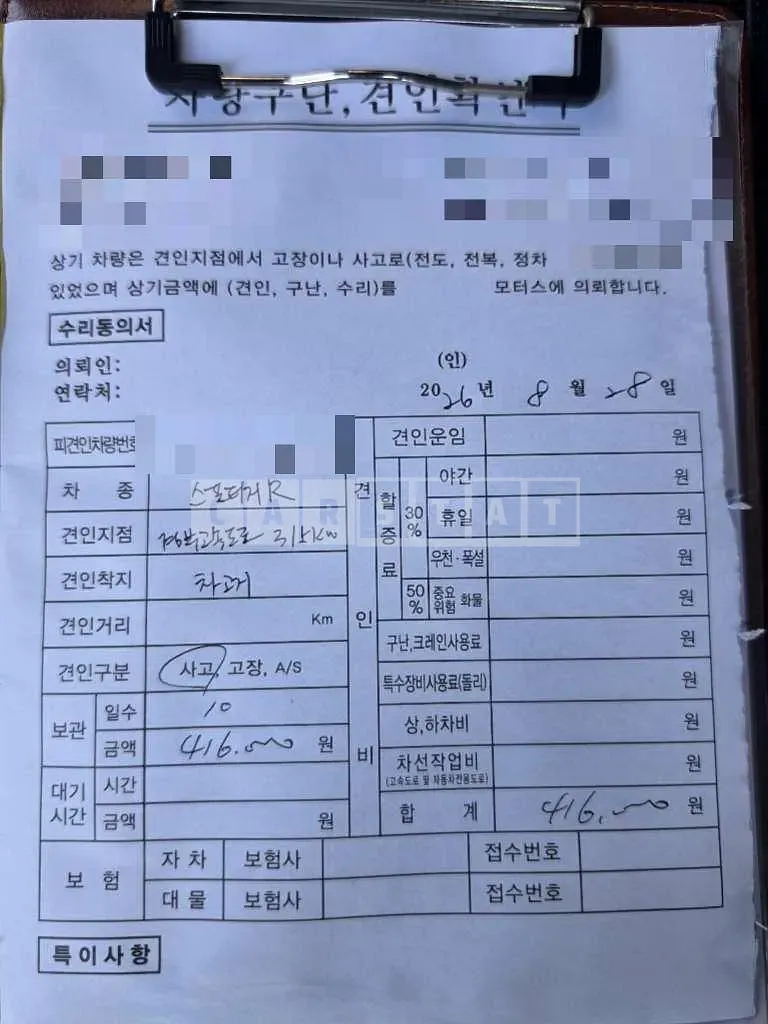 차량구난,견인확인서
상기 차량은 견인지점에서 고장이나 사고로(전도, 전복, 정차
있었으며 상기금액에 (견인, 구난, 수리)를 모터스에 의뢰합니다.
수리동의서
의뢰인: (인)
연락처: 2026년 8월 28일
피견인차량번호
차 종 스포티지R
견인지점 경부고속도로 315km
견인착지 차고지
견인거리 Km
견인구분 사고, 고장, A/S
보관 일수 10
금액 416.000 원
대기시간 시간
금액 원
견인비
견인운임 원
할증료 30% 야간 원
휴일 원
우천·폭설 원
50% 중요위험 화물 원
구난,크레인사용료 원
특수장비사용료(돌리) 원
상,하차비 원
차선작업비 원
(고속도로 및 자동차전용도로)
합 계 416,000 원
보 험 자 차 보험사 접수번호
대 물 보험사 접수번호
특이사항